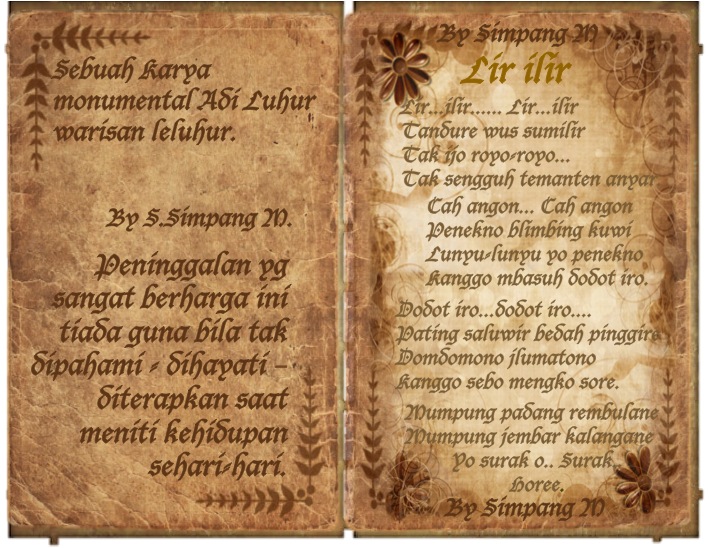 Sebuah Karya
monumental Adi Luhur
warisan leluhur.
By S.Simpang M.
Peninggalan yg
sangat berharga ini
tiada guna bila tak
dipahami - dihayati -
diterapkan saat
meniti kehidupan
sehari-hari.
By Simpang M
Lir ilir
Lir...ilir...... Lir...ilir
Tandure wus sumilir
Tak ijo royo-royo...
Tak sengguh temanten anyar
Cah angon... Cah angon
Penekno blimbing kuwi
Lunyu-lunyu yo penekno
Kanggo mbasuh dodot iro.
Dodot iro...dodot iro....
Pating saluwir bedah pinggire
Domdomono jlumatono
Kanggo sebo mengko sore.
Mumpung padang rembulane
Mumpung jembar kalangane
Yo surak o.. Surak..
Horee.
By Simpang M